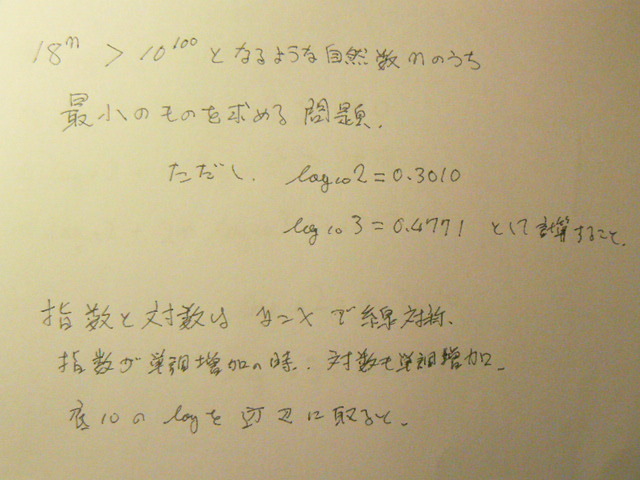 18ⁿ > 10¹⁰⁰ となるような自然数nのうち
最小のものを求める問題.
ただし. log₁₀2=0.3010
log₁₀3=0.4771 として計算すること.
指数と対数は y=x で線対称.
指数が単調増加の時. 対数も単調増加.
底10のlogを両辺に取ると.